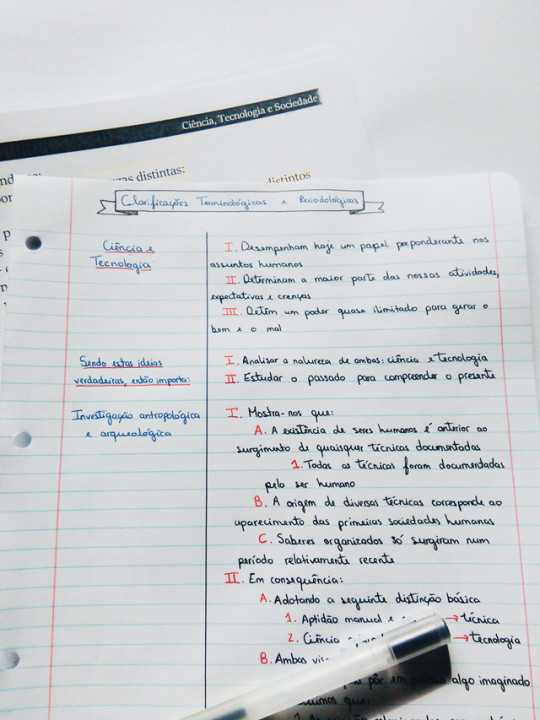 Ciência, Tecnologia e Sociedade
distintas:
distintos
Clarificações Terminológicas e Periodológicas
Ciência e
Tecnologia
I. Desempenham hoje um papel preponderante nos
assuntos humanos
II. Determinam a maior parte das nossas atividades,
expectativas e crenças
III. Detêm um poder quase ilimitado para gerar o
bem e o mal
Sendo estas ideias
verdadeiras, então importa:
I. Analisar a natureza de ambas: ciência e tecnologia
II. Estudar o passado para compreender o presente
Investigação antropológica
e arqueológica
I. Mostra-nos que:
A. A existência de seres humanos é anterior ao
surgimento de quaisquer técnicas documentadas
1. Todas as técnicas foram documentadas
pelo ser humano
B. A origem de diversas técnicas corresponde ao
aparecimento das primeiras sociedades humanas
C. Saberes organizados só surgiram num
período relativamente recente
II. Em consequência:
A. Adotando a seguinte distinção básica
1. Aptidão manual e → técnica
2. Ciência → tecnologia
B. Ambas
pôr em algo imaginado
que: